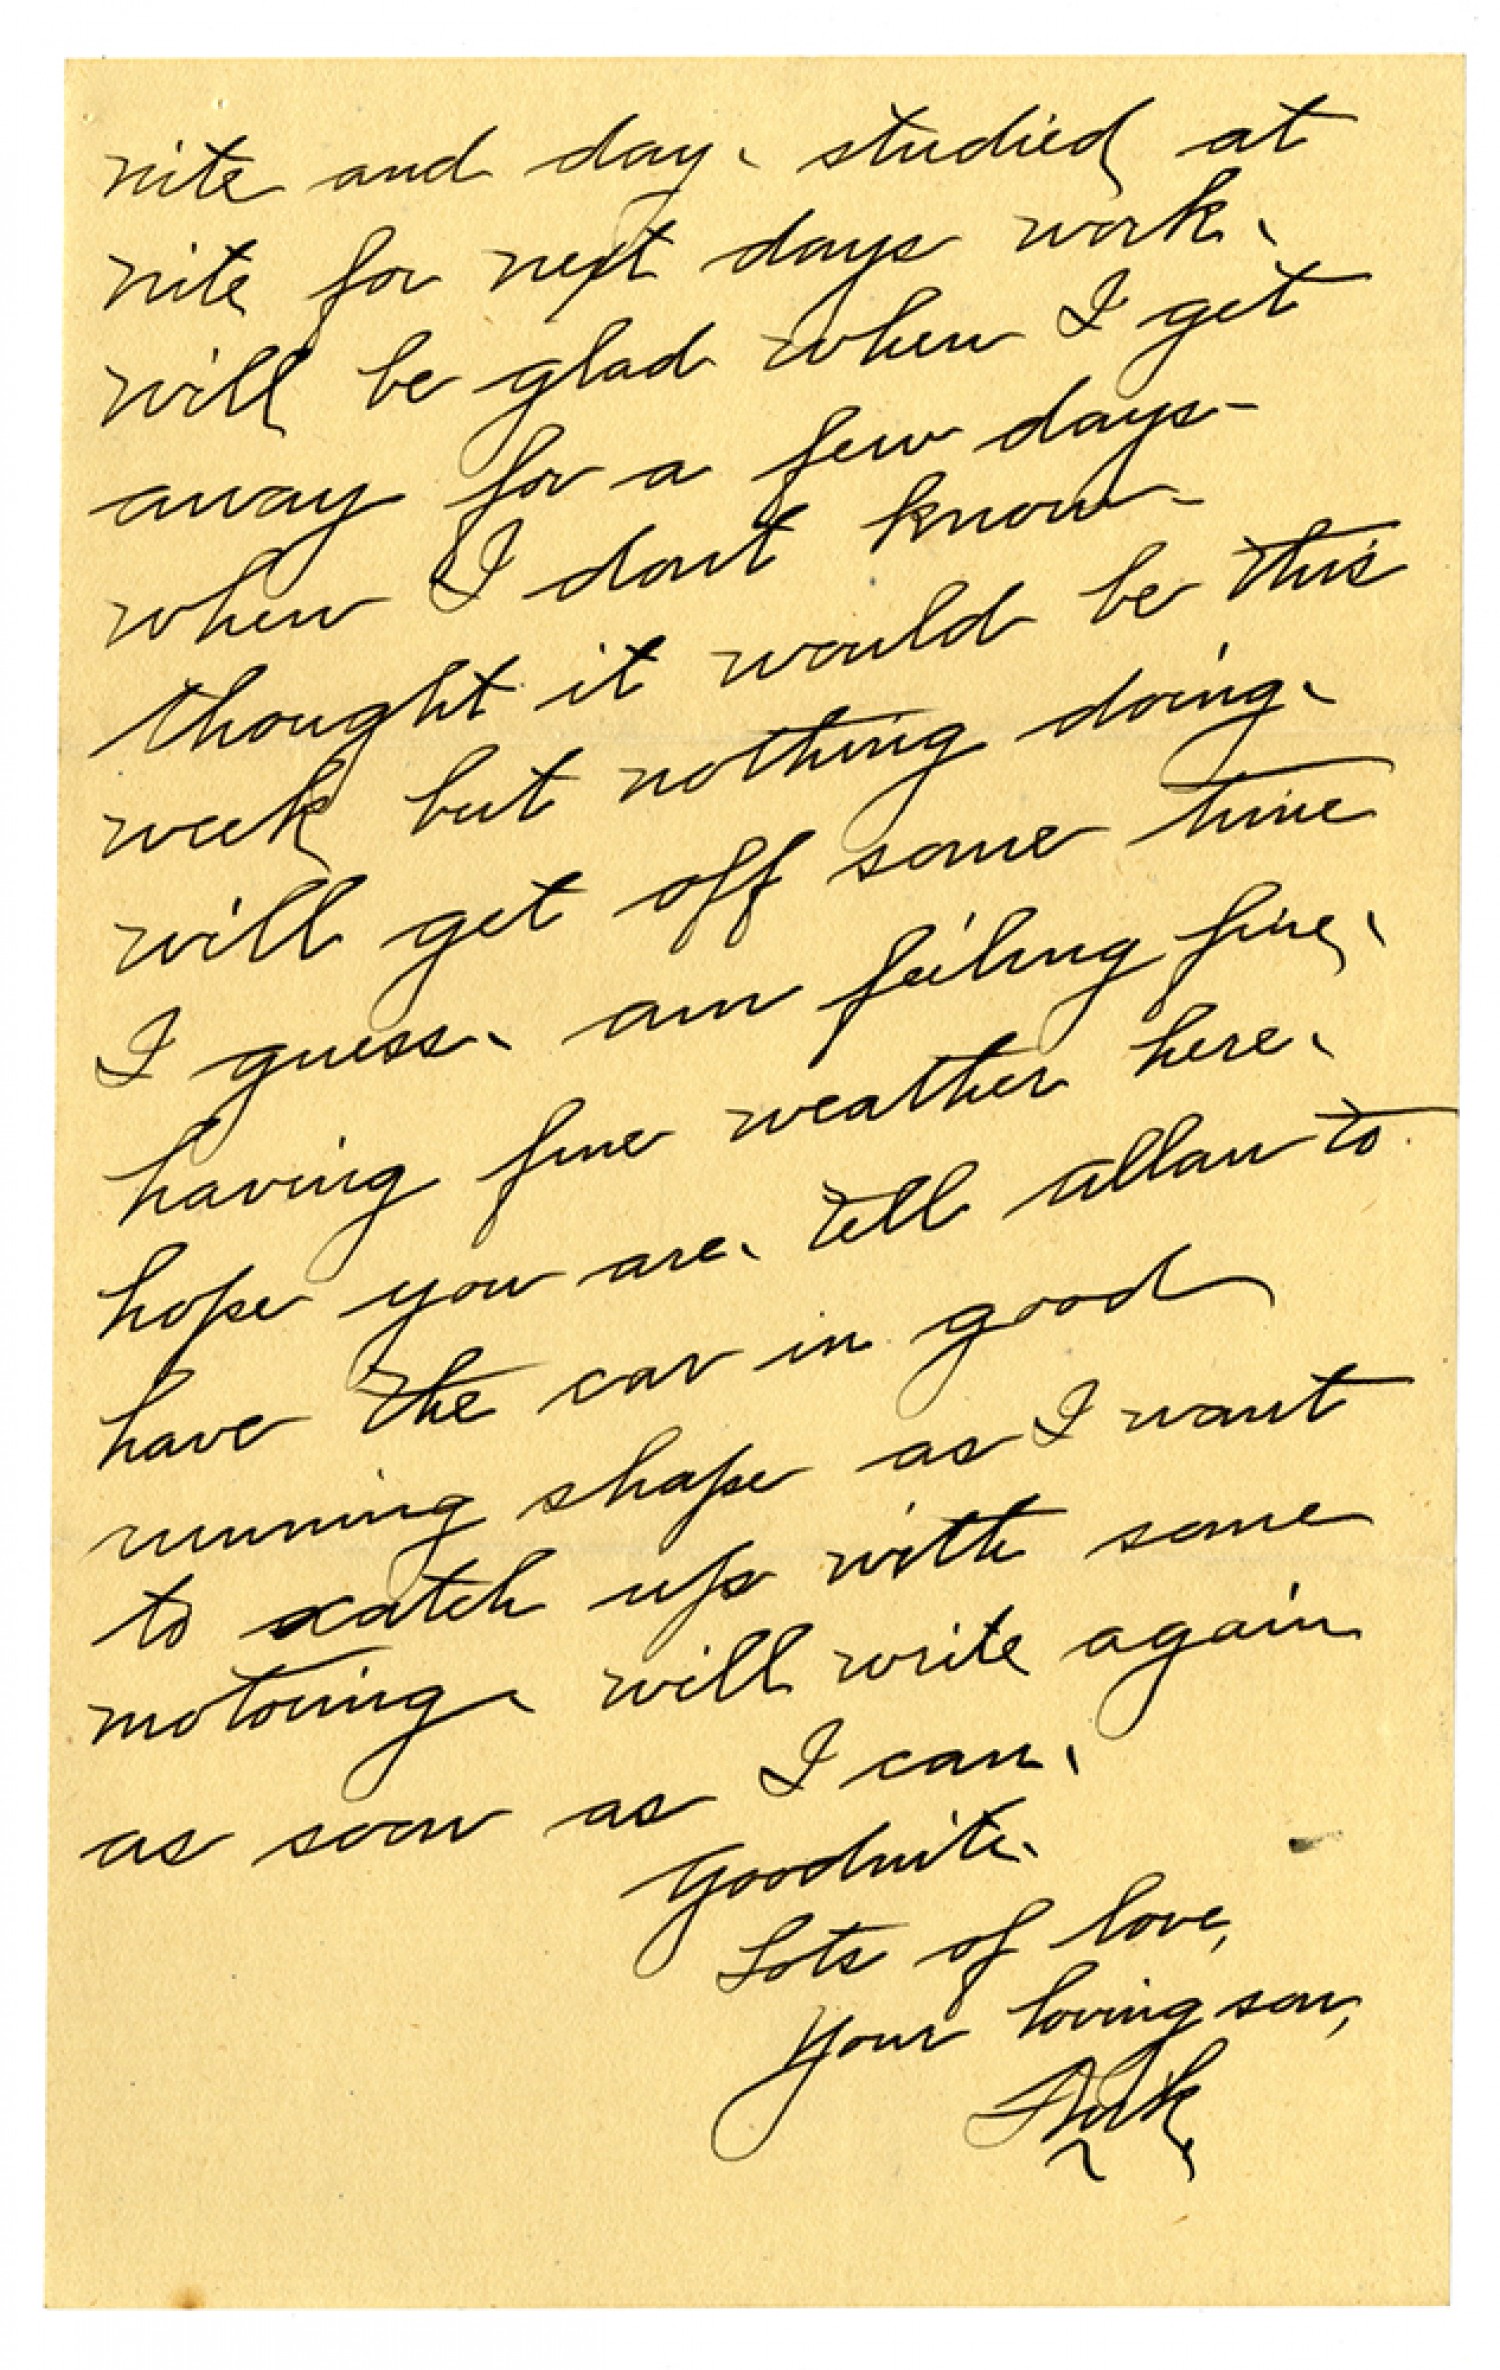 nite and day. studied at
nite for next days work.
will be glad when I get
away for a few days -
when I dont know -
thought it would be this
week but nothing doing.
will get off some time
I guess. am feeling fine.
having fine weather here.
hope you are. tell allan to
have the car in good
running shape as I want
to catch up with some
motoring. will write again
as soon as I can.
Goodnite.
Lots of love,
Your loving son,